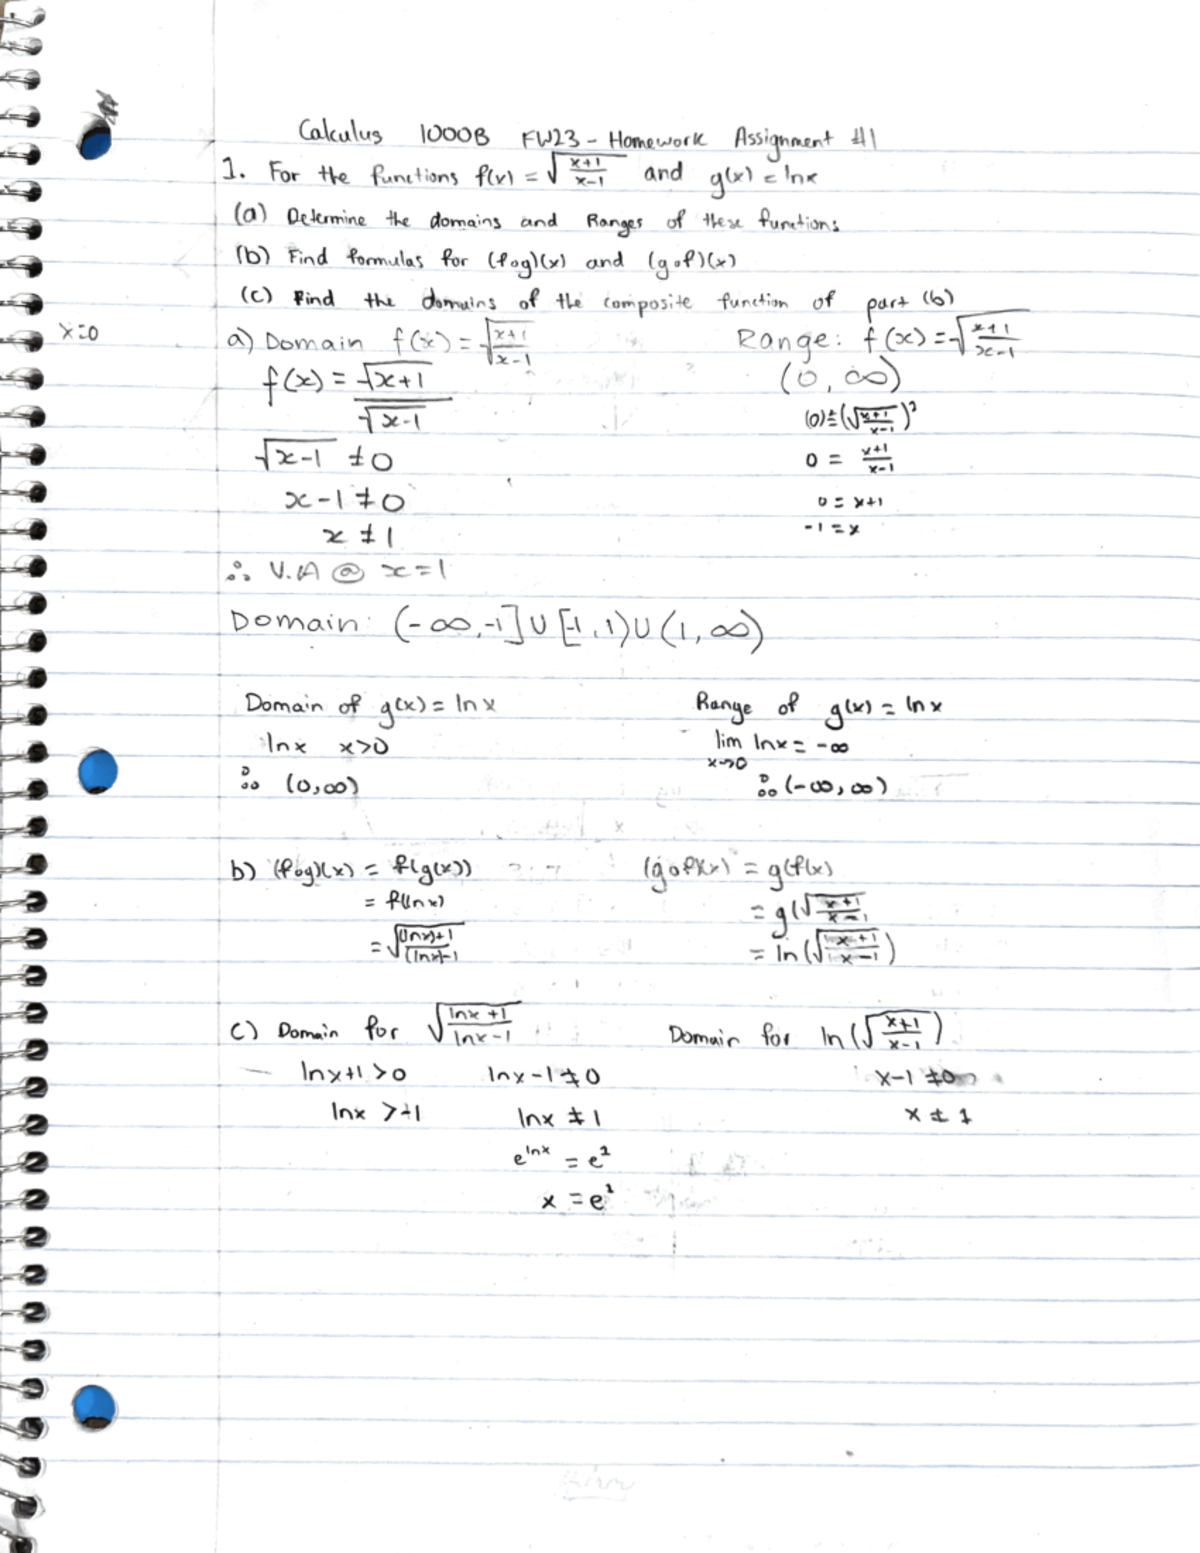 Calculus 1000B FW23 - Homework Assignment #1
1. For the functions f(x) = √(x+1 / x-1) and g(x) = lnx
(a) Determine the domains and Ranges of these functions
(b) Find formulas for (fog)(x) and (gof)(x)
(c) Find the domains of the composite function of part (b)
x=0
a) Domain f(x) = √(x+1 / x-1)
f(x) = √x+1 / √x-1
√x-1 ≠ 0
x-1 ≠ 0
x ≠ 1
∴ V.A @ x=1
Domain: (-∞,-1] U [-1,1) U (1,∞)
Range: f(x) = √(x+1 / x-1)
(0, ∞)
(0)² = (√(x+1 / x-1))²
0 = x+1 / x-1
0 = x+1
-1 = x
Domain of g(x) = ln x
ln x x>0
∴ (0,∞)
Range of g(x) = ln x
lim x→0 lnx = -∞
∴ (-∞,∞)
b) (fog)(x) = f(g(x))
= f(lnx)
= √((lnx)+1 / (lnx)-1)
(gof)(x) = g(f(x)
= g(√(x+1 / x-1)
= ln(√(x+1 / x-1))
c) Domain for √(lnx+1 / lnx-1)
lnx+1 >0
lnx >-1
lnx-1 ≠ 0
lnx ≠ 1
e^lnx = e^1
x = e^1
Domain for ln(√(x+1 / x-1))
x-1 ≠0
x ≠ 1